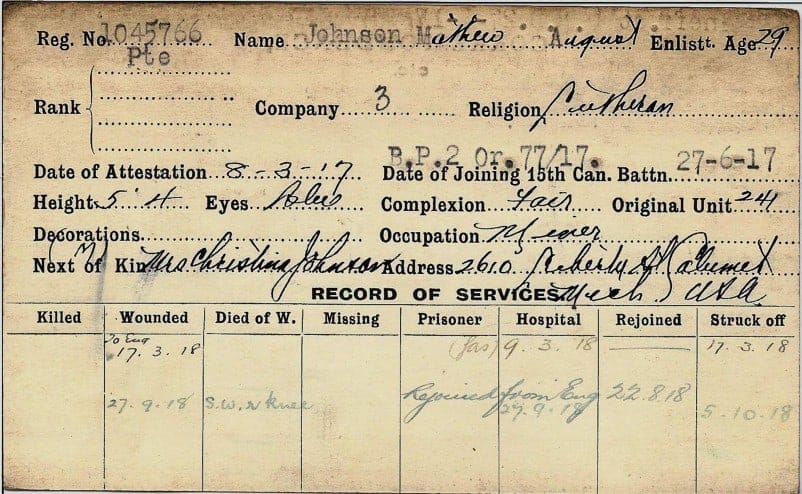 Reg. No. 1045766 Name Johnson Mathew August Enlistt. Age 29
Pte
Rank Company 3 Religion Lutheran
B.P.2 Or.77/17.
Date of Attestation 8-3-17 Date of Joining 15th Can. Battn. 27-6-17
Height 5' 4 Eyes Blue Complexion Fair Original Unit 241
Decorations Occupation Miner
Next of Kin Mrs Christina Johnson Address 2610 St Calumet
RECORD OF SERVICES Mich. USA
Killed Wounded Died of W. Missing Prisoner Hospital Rejoined Struck off
To Eng
17.3.18 (Gas) 9.3.18 17.3.18
27.9.18 S.W. knee Rejoined from Eng 22.8.18
27.9.18 5.10.18